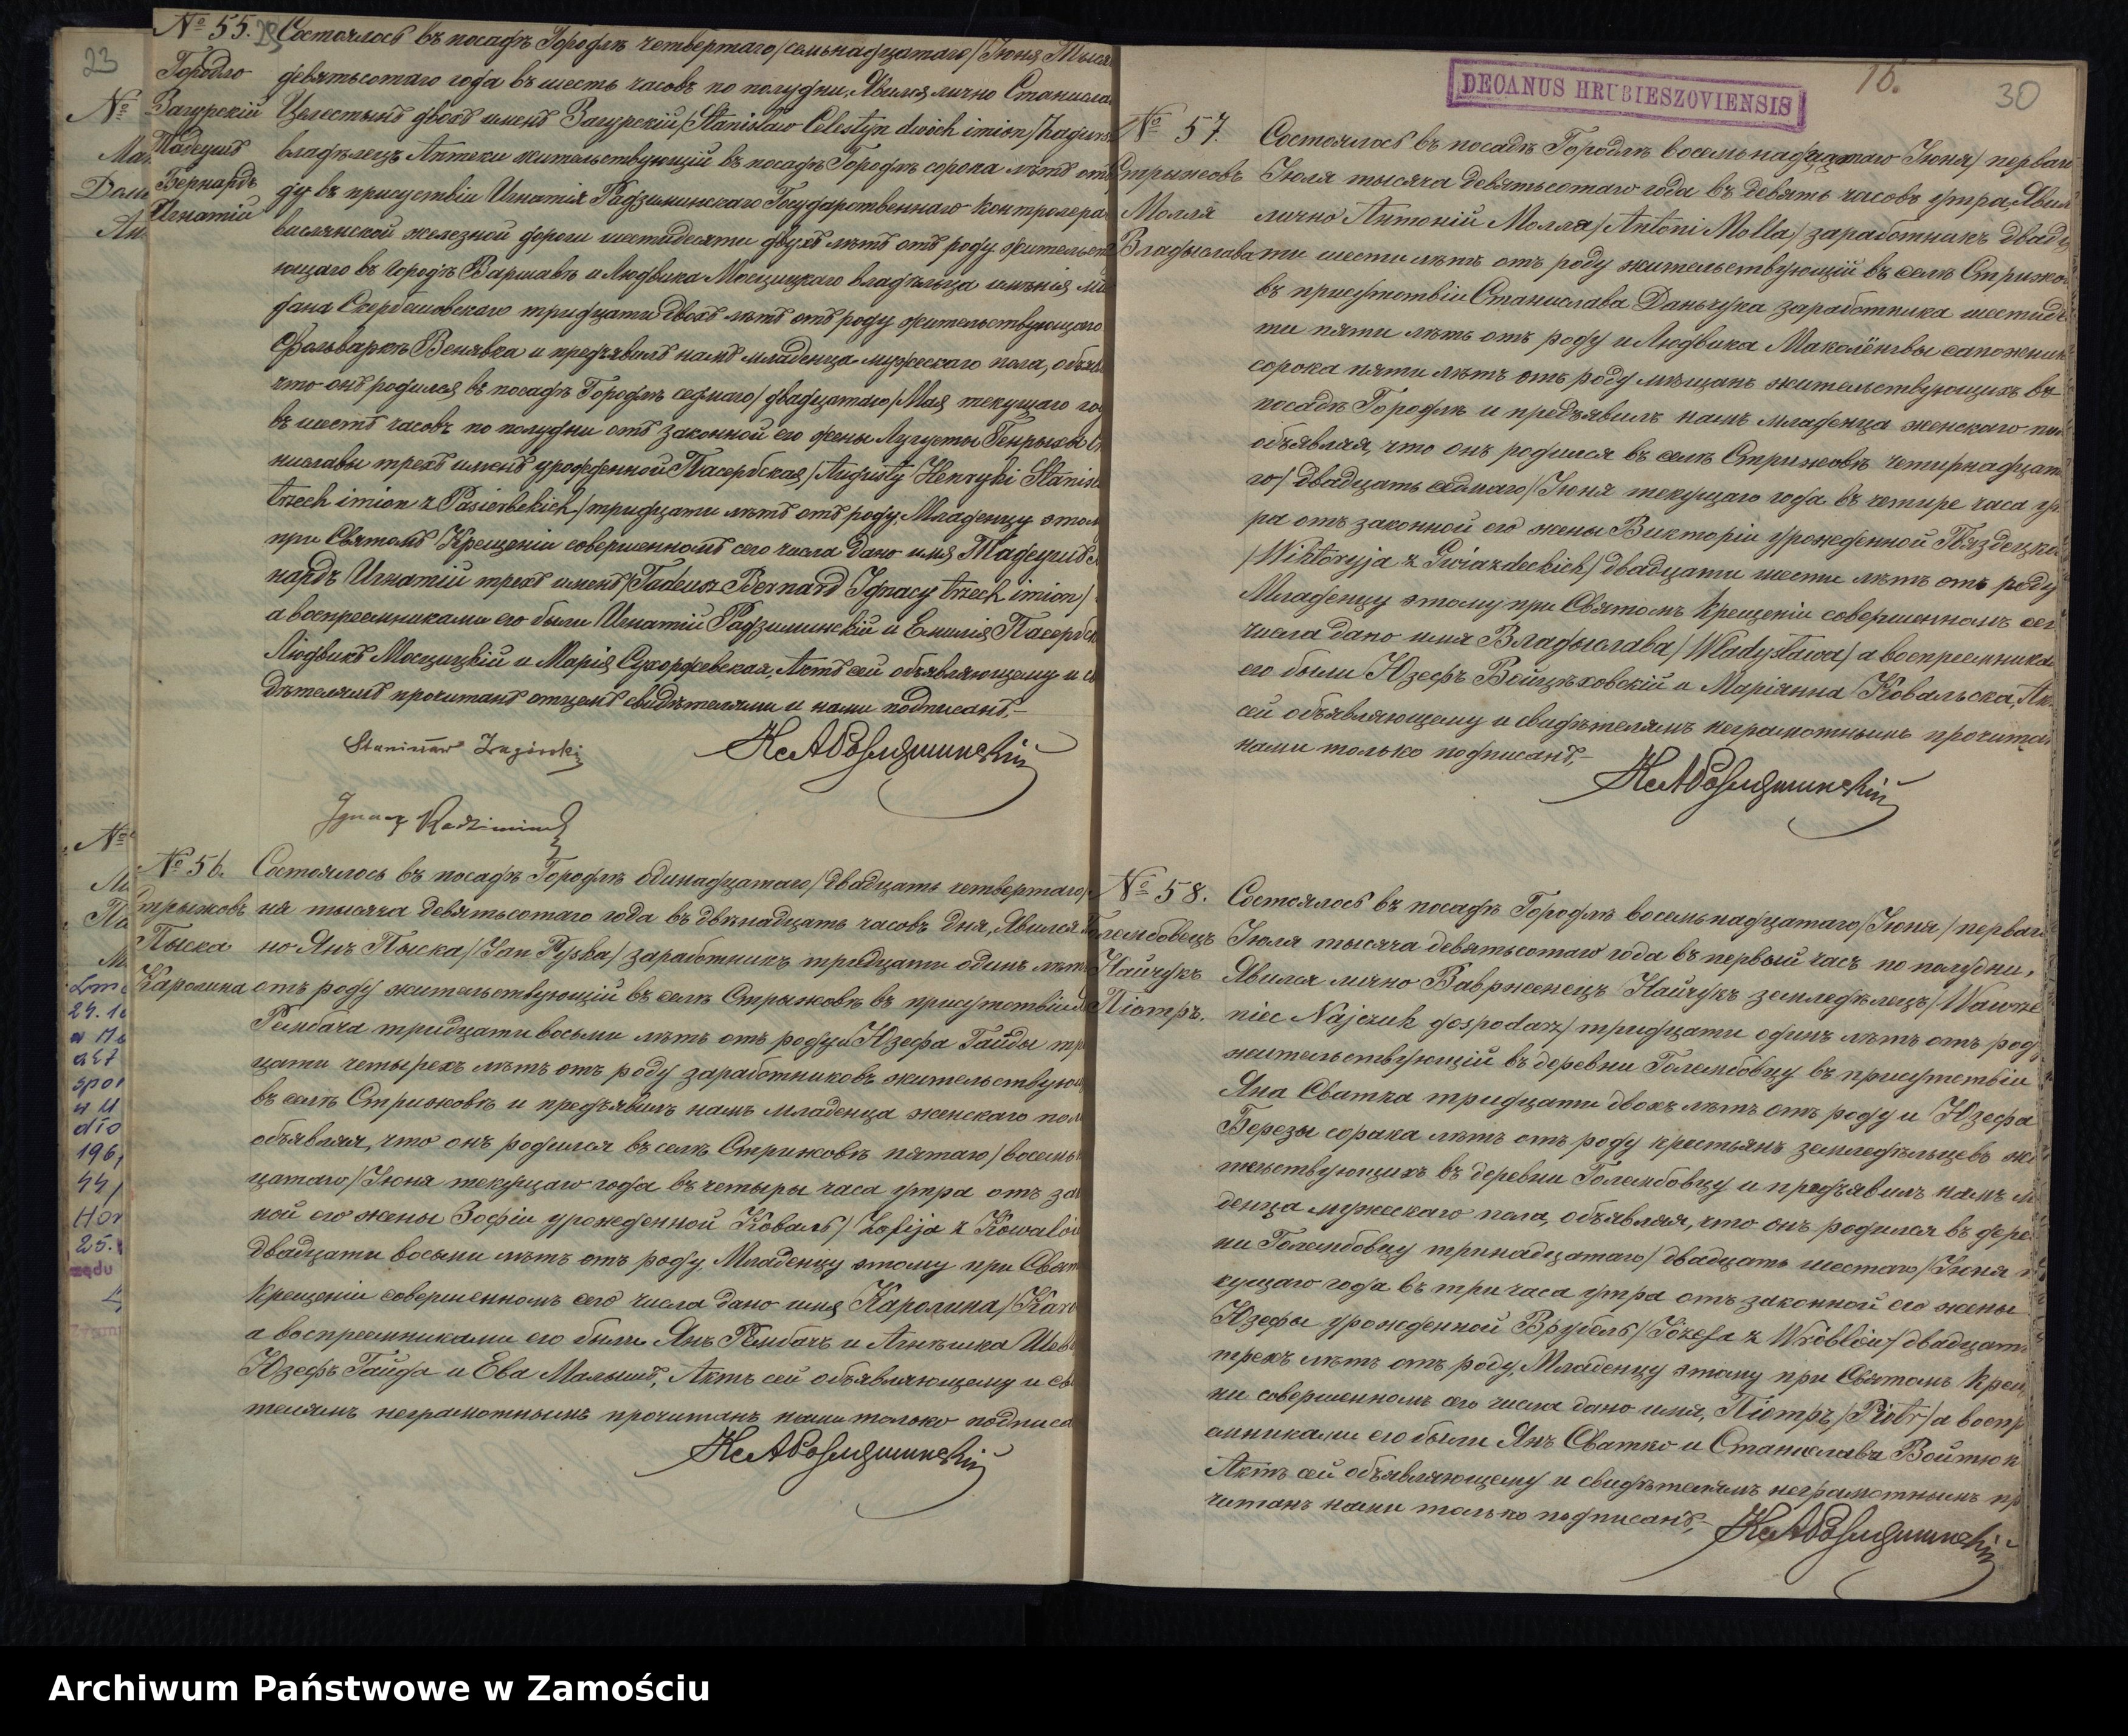 № 55.
Городло
Загурскій
Тадеушъ
Бернардъ
Игнатій
Состоялось въ посадѣ Городлѣ четвертаго/семьнадцатаго/Іюня Тысяча
девятьсотаго года въ шесть часовъ по полудни, Явился лично Станисла
Целестынъ двохъ именъ Загурскій/Stanisław Celestyn dwoch imion/Zagurs
владѣлецъ Аптеки жительствующій въ посадѣ Городлѣ сорока лѣтъ отъ
ду въ присуствіи Игнатія Радзиминскаго Государственнаго Контролера
вислянской железной дороги шестидесяти двухъ лѣтъ отъ роду жительств
ющаго въ Городѣ Варшавѣ и Людвика Мосцицкаго владѣльца имѣнія
тридцати двохъ лѣтъ отъ роду жительствующаго
Фольваркъ Венявка и предъявилъ намъ младенца мужескаго пола, объяв
что онъ родился въ посадѣ Городлѣ седмаго/двадцатаго/Мая текущаго го
въ шесть часовъ по полудни отъ законной его жены Аугусты Генрыки Ст
ниславы трехъ именъ урожденной Пасербская,/Augusty Henryki Stanisł
trzech imion z Pasierbskich/тридцати лѣтъ отъ роду, Младенцу этом
при Святомъ Крещеніи совершенномъ сего числа дано имя Тадеушъ Бе
нардъ Игнатій трехъ именъ/Tadeusz Bernard Ignacy trzech imion/
а воспреемниками его были Игнатій Радзиминскій и Емилія Пасербск
Людвикъ Мосцицкій и Марія Сухоржевская, Актъ сей объявляющему и св
дѣтелямъ прочитанъ отцемъ свидѣтелями и нами подписанъ,—
Stanisław Zagórski
Ignacy Radzimiński
№ 56.
Стрыжовъ
Пыска
Каролина
Состоялось въ посадѣ Городлѣ одинадцатаго/двадцать четвертаго/
ня тысяча девятьсотаго года въ двѣнадцать часовъ дня, Явился
но Янъ Пыска/Jan Pyska/заработникъ тридцати одинъ лѣт
отъ роду жительствующій въ селѣ Стрыжовѣ въ присутствіи
Рембача тридцати восьми лѣтъ отъ роду и Юзефа Гайды тр
цати четырехъ лѣтъ отъ роду заработниковъ жительствующ
въ селѣ Стрижовѣ и предъявилъ намъ младенца женскаго пол
объявляя, что онъ родился въ селѣ Стрижовѣ пятаго/восемь
цатаго/Іюня текущаго года въ четыры часа утра отъ за
ной его жены Зофіи урожденной Коваль/Zofija z Kowalów
двадцати восьми лѣтъ отъ роду, Младенцу этому при Свят
Крещеніи совершенномъ сего числа дано имя Каролина/Karo
а воспреемниками его были Янъ Рембачъ и Агнѣшка Шев
Юзефъ Гайда и Ева Малышъ, Актъ сей объявляющему и св
телямъ неграмотнымъ прочитанъ нами только подписа
DECANUS HRUBIESZOVIENSIS
16.
30
№ 57.
Стрыжовъ
Молля
Владыслава
Состоялось въ посадѣ Городлѣ восемьнадцатаго Іюня/перваго
Іюля тысяча девятьсотаго года въ девять часовъ утра, Явил
лично Антоній Молля/Antoni Molla/заработникъ двадц
ти шести лѣтъ отъ роду жительствующій въ селѣ Стрижов
въ присутствіи Станислава Даньчука заработника шестиде
ти пяти лѣтъ отъ роду и Людвика Маколёнгвы сапожник
сорока пяти лѣтъ отъ роду мѣщанъ жительствующихъ въ
посадѣ Городлѣ и предъявилъ намъ младенца женскаго по
объявляя, что онъ родился въ селѣ Стрижовѣ четырнадцат
го/двадцать седмаго/Іюня текущаго года въ четыре часа ут
ра отъ законной его жены Викторіи урожденной Гвяздецка
/Wiktoryja z Gwiazdeckich/двадцати шести лѣтъ отъ роду
Младенцу этому при Святомъ Крещеніи совершенномъ сег
числа дано имя Владыслава/Władysława/а воспреемника
его были Юзефъ Войцѣховскій и Маріянна Ковальска, Ак
сей объявляющему и свидѣтелямъ неграмотнымъ прочита
нами только подписанъ,—
№ 58.
Голембовецъ
Найчукъ
Піотръ.
Состоялось въ посадѣ Городлѣ восемьнадцатаго/Іюня/перваго
Іюля тысяча девятьсотаго года въ первый часъ по полудни,
Явился лично Вавржинецъ Найчукъ земледѣлецъ/Wawrze
niec Najczuk gospodarz/тридцати одинъ лѣтъ отъ род
жительствующій въ деревни Голембовцу въ присутствіи
Яна Сватка тридцати двохъ лѣтъ отъ роду и Юзефа
Березы сорака лѣтъ отъ роду крестьянъ земледѣльцевъ жи
тельствующихъ въ деревни Голембовцу и предъявилъ намъ м
денца мужескаго пола, объявляя, что онъ родился въ дере
ни Голембовцу тринадцатаго/двадцать шестаго/Іюня
кущаго года въ три часа утра отъ законной его жены
Юзефы урожденной Врубель/Józefa z Wróblów/двадцати
трехъ лѣтъ отъ роду, Младенцу этому при Святомъ Крещ
ни совершенномъ сего числа дано имя, Піотръ/Piotr/а воспр
емниками его были Янъ Сватко и Станислава Войтюк
Актъ сей объявляющему и свидѣтелямъ неграмотнымъ пр
читанъ нами только подписанъ,—
Archiwum Państwowe w Zamościu